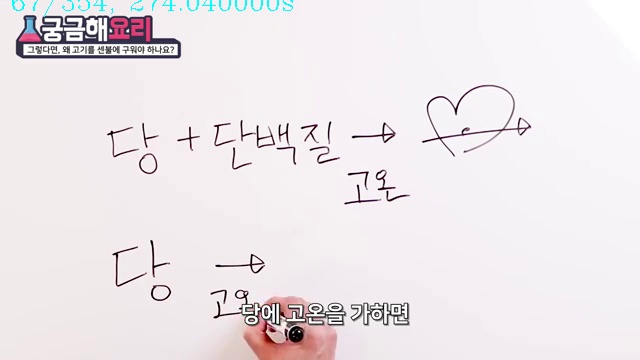 67/354, 274.040000s
궁금해요리
그렇다면, 왜 고기를 센불에 구워야 하나요?
당 + 단백질 →
고온
당 →
고온
당에 고온을 가하면